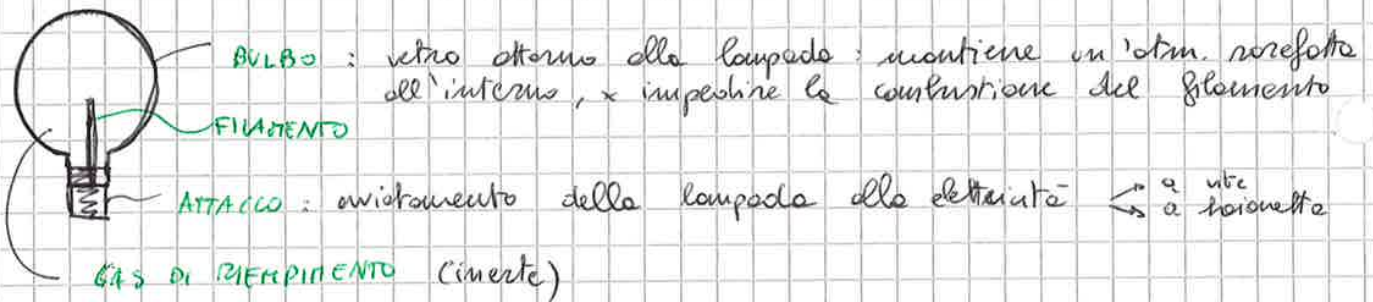 BULBO : vetro attorno alla lampada : mantiene un'atm. rarefatta
all'interno, x impedire la combustione del filamento
FILAMENTO
ATTACCO : avvitamento della lampada alla elettricità
a vite
a baionetta
GAS DI RIEMPIMENTO (inerte)